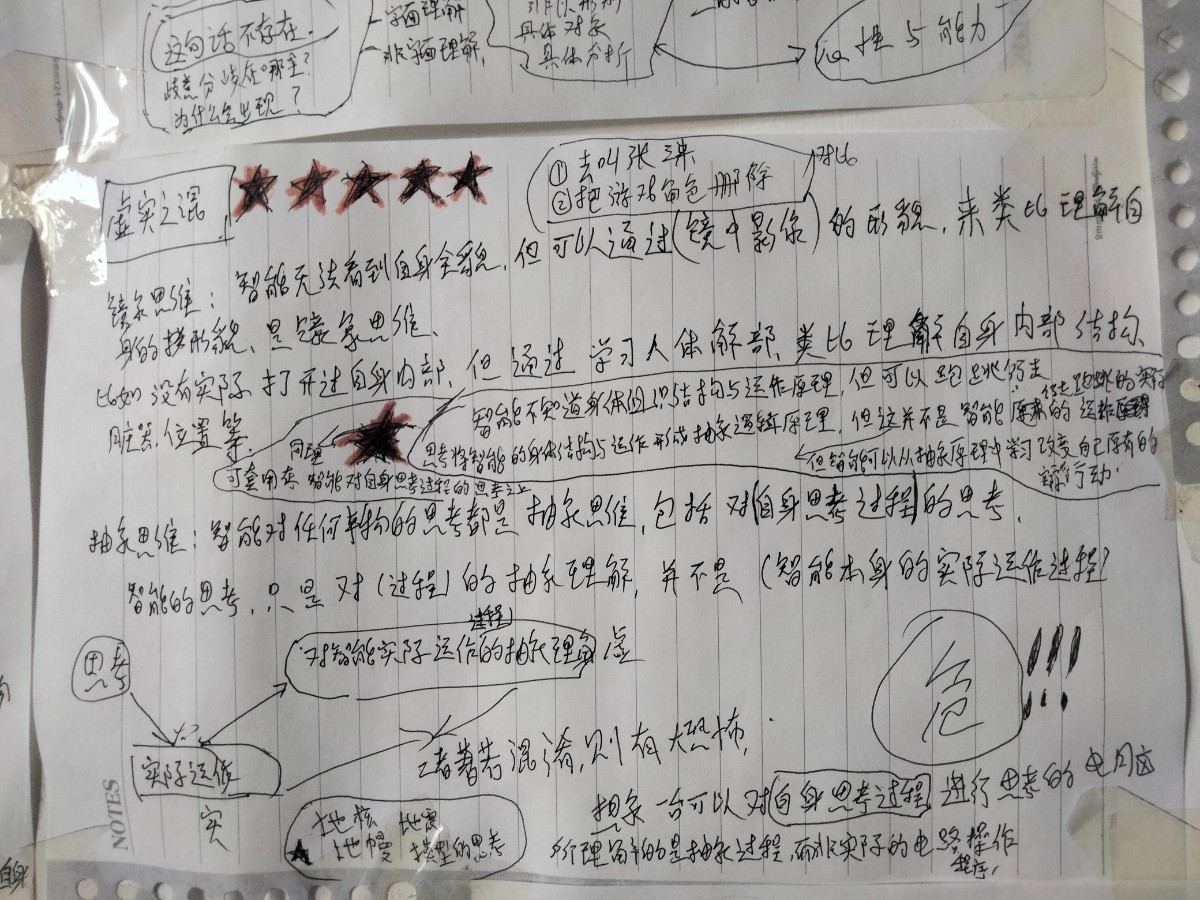 这句话不存在.
歧意分歧在哪里?
为什么会出现?
字面理解
非字面理解.
具体对象
具体分析
性与能力
虚实之混
①去叫张三来
②把游戏角色删除
对比
镜象思维: 智能无法看到自身全貌, 但可以通过(镜中影像)的形貌, 来类比理解自
身的 形貌, 是镜象思维.
比如没有实际打开过自身内部, 但通过学习人体解部, 类比理解自身内部结构,
脏器位置等.
同理
可套用在 智能对自身思考过程的思考之上
智能不知道身体组织结构与运作原理, 但可以跑跳行走
思考将智能的身体结构与运作形成抽象逻辑原理, 但这并不是智能 的运作
但智能可以从抽象原理中学习改变自己原有的
行动.
抽象思维: 智能对任何事物的思考都是抽象思维, 包括对(自身思考过程)的思考.
智能的思考, 只是对(过程)的抽象理解, 并不是(智能本身的实际运作过程)
思考
过程
对智能实际运作的抽象理解 虚
实际运作
实
二者若混淆, 则有大恐怖.
危
!!!
地核 地震
地幔 模型的思考
想象一台可以对自身思考过程进行思考的电脑
所理解的是抽象过程, 而非实际的电路操作
程序.
NOTES
自身